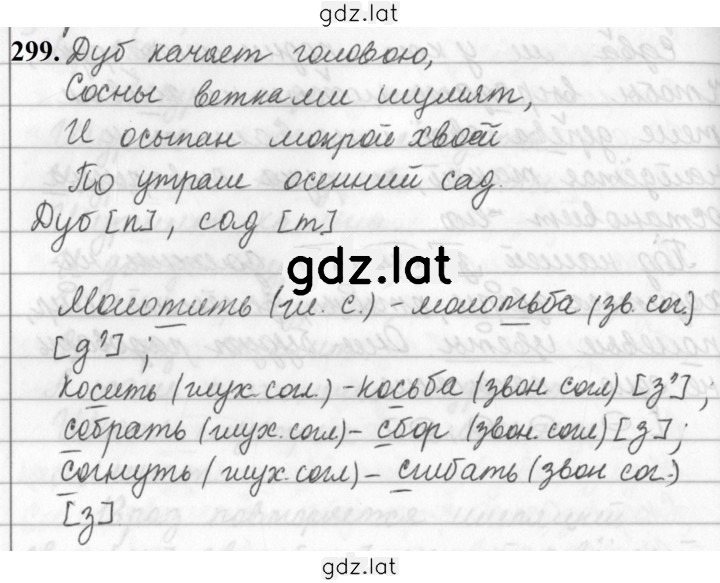 gdz.lat
299. Дуб качает головою,
Сосны ветками шумят,
И осыпан мокрой хвоей
По утрам осенний сад.
Дуб [п], сад [т]
gdz.lat
Молотить (гл. с.) - молотьба (зв. сог.)
[д'];
косить (глух. согл.) - косьба (звон. согл) [з'];
собрать (глух. согл) - сбор (звон. согл) [з];
согнуть (глух. согл) - сгибать (звон сог.)
[з]
gdz.lat